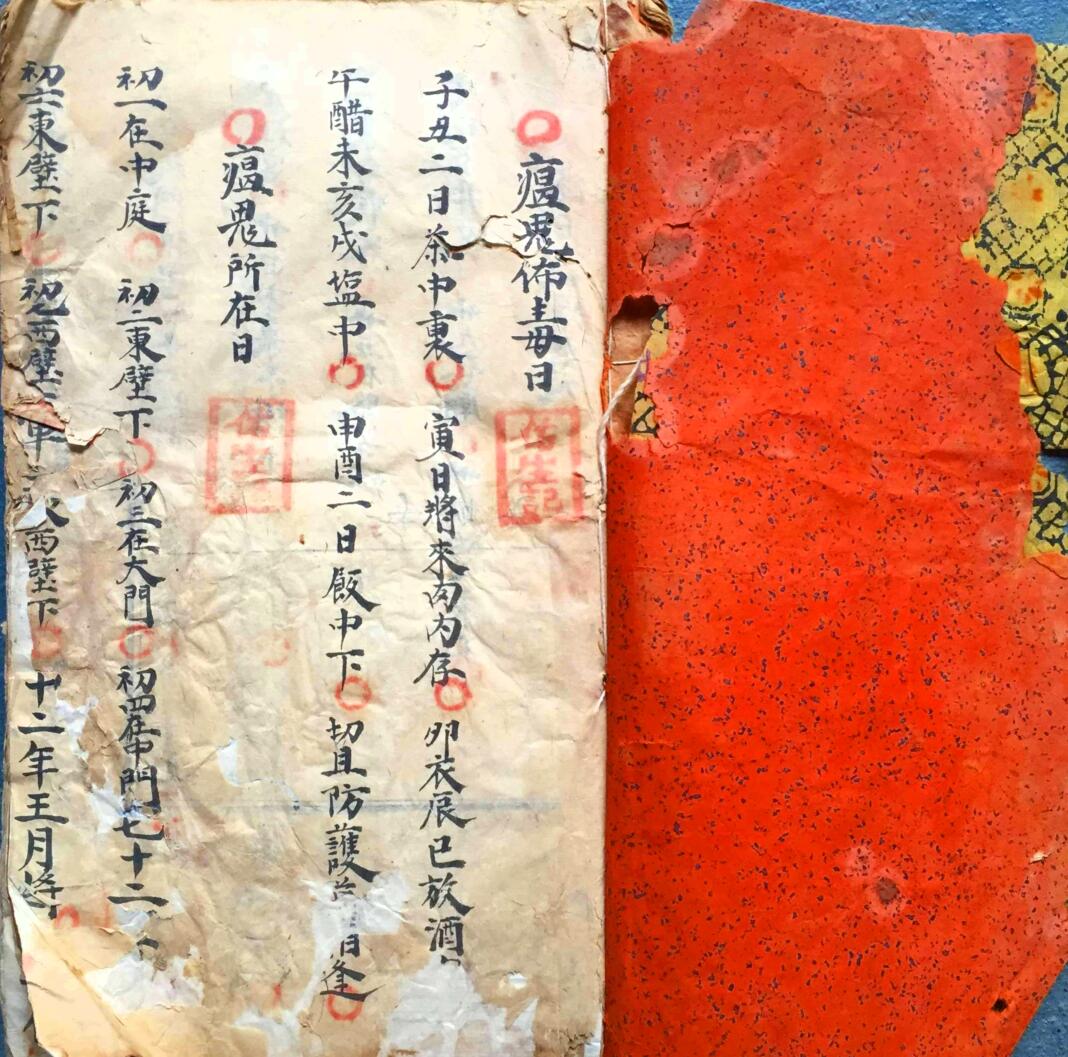 瘟鬼佈主每日
子丑二日茶中裏 寅日將來肉内存 卯衣辰巳放酒
午醋未亥戌塩中 申酉二日飯中下 切且防護 日逢
瘟鬼所在日
初一在中庭 初二東壁下 初三在大門 初四在中門 七十二
初六東壁下 初 西壁 西壁下 十二年王月將